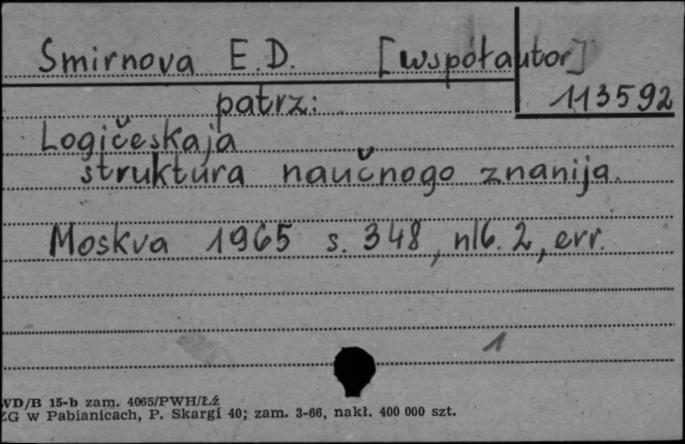 Smirnova E.D. [współautor]
113592
patrz:
Logičeskaja
struktura naučnogo znanija.
Moskva 1965 s. 348, nlb. 2, err.
1
WD/B 15-b zam. 4065/PWH/Łź
ZG w Pabianicach, P. Skargi 40; zam. 3-66, nakł. 400 000 szt.